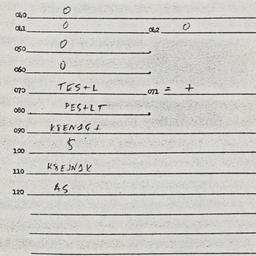 040 0
041 0 042 0
050 0
060 0
070 TES+L 071 = +
080 PES+LT
090
100 5
110
120 AS